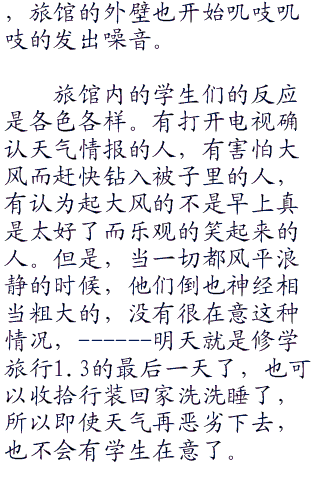 ，旅馆的外壁也开始叽吱叽
吱的发出噪音。
旅馆内的学生们的反应
是各色各样。有打开电视确
认天气情报的人，有害怕大
风而赶快钻入被子里的人，
有认为起大风的不是早上真
是太好了而乐观的笑起来的
人。但是，当一切都风平浪
静的时候，他们倒也神经相
当粗大的，没有很在意这种
情况，------明天就是修学
旅行1.3的最后一天了，也可
以收拾行装回家洗洗睡了，
所以即使天气再恶劣下去，
也不会有学生在意了。